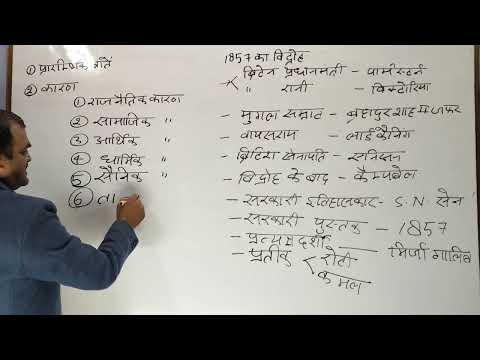 ① प्रारम्भिक बातें
② कारण
① राजनैतिक कारण
② सामाजिक "
③ आर्थिक "
④ धार्मिक "
⑤ सैनिक "
⑥ ता
1857 का विद्रोह
ब्रिटेन प्रधानमंत्री - पामर्स्टन
" रानी - विक्टोरिया
- मुगल सम्राट - बहादुरशाह जफर
- वायसराय - लार्ड कैनिंग
- ब्रिटिश सेनापति -
- विद्रोह के बाद - कैम्पबेल
- सरकारी इतिहासकार - S.N सेन
- सरकारी पुस्तक - 1857
- प्रत्यक्षदर्शी - मिर्जा गालिब
- प्रतीक < रोटी
कमल